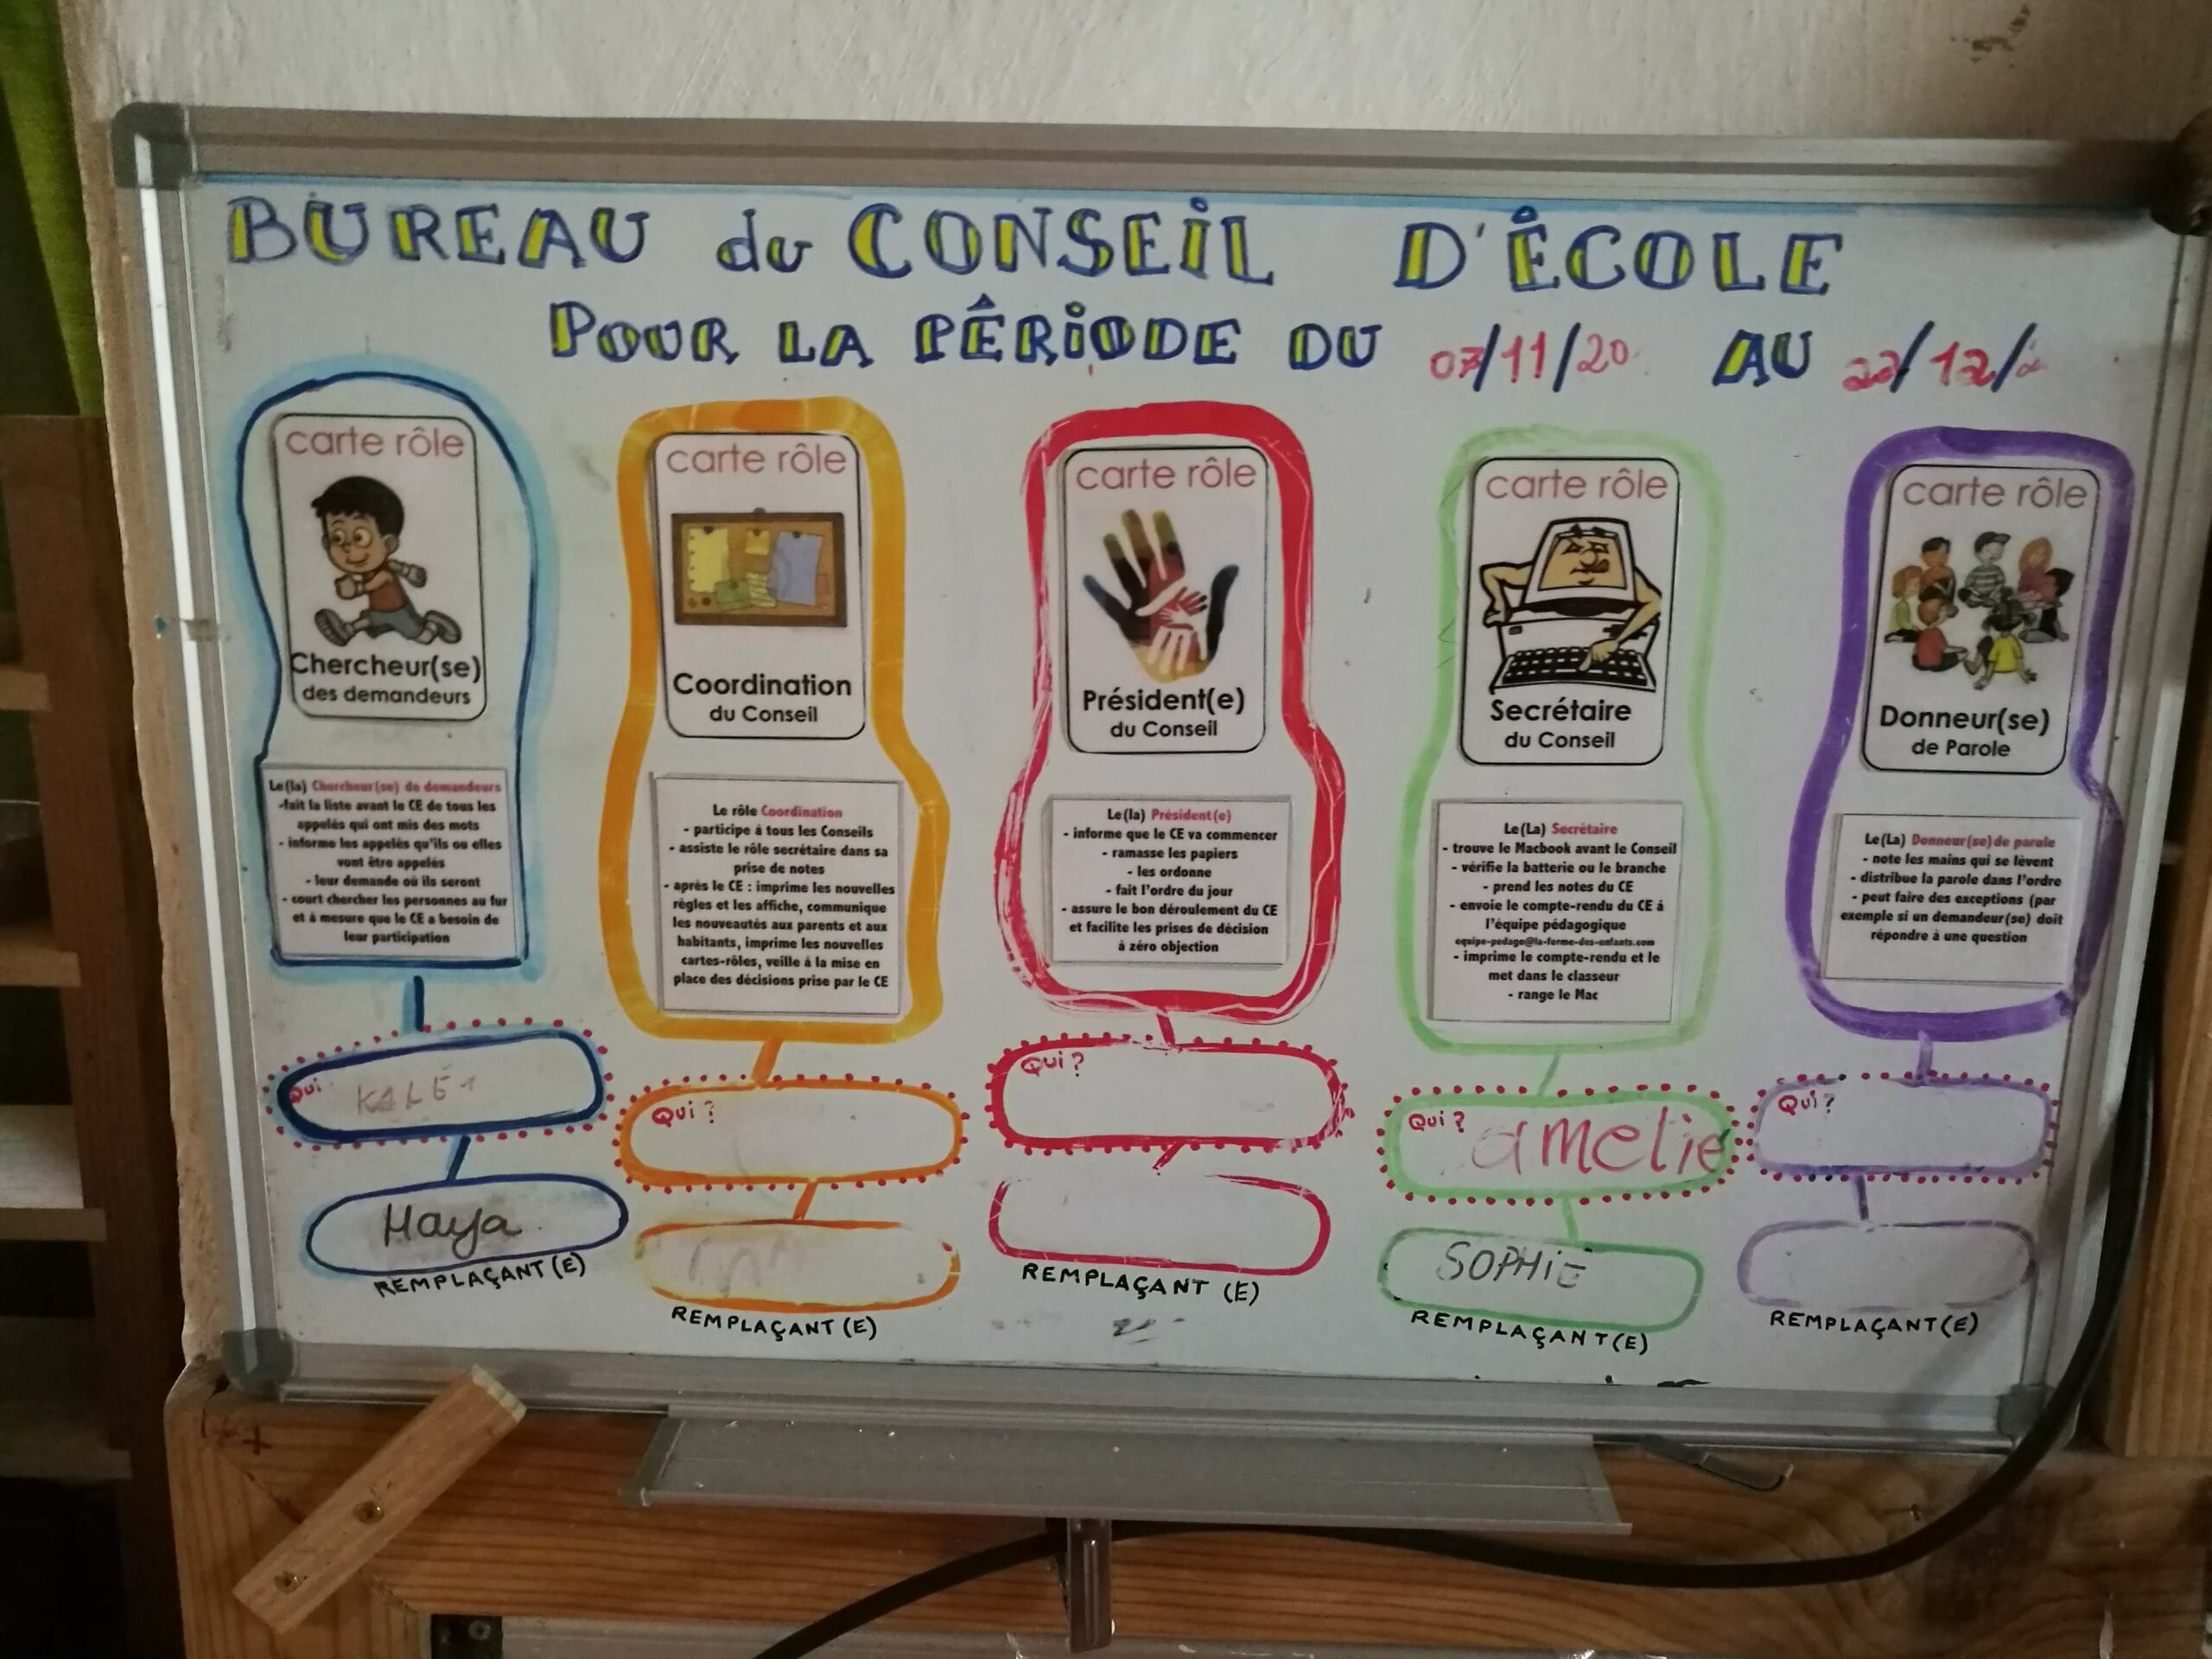 BUREAU du CONSEIL D'ÉCOLE
POUR LA PÉRIODE DU 07/11/20 AU 22/12/
carte rôle
Chercheur(se)
des demandeurs
Le(la) Chercheur(se) de demandeurs
-fait la liste avant le CE de tous les
appelés qui ont mis des mots
- informe les appelés qu'ils ou elles
vont être appelés
- leur demande où ils seront
- court chercher les personnes au fur
et à mesure que le CE a besoin de
leur participation
Qui
Haya
REMPLAÇANT(E)
carte rôle
Coordination
du Conseil
Le rôle Coordination
- participe à tous les Conseils
- assiste le rôle secrétaire dans sa
prise de notes
- après le CE : imprime les nouvelles
règles et les affiche, communique
les nouveautés aux parents et aux
habitants, imprime les nouvelles
cartes-rôles, veille à la mise en
place des décisions prise par le CE
Qui ?
REMPLAÇANT(E)
carte rôle
Président(e)
du Conseil
Le(la) Président(e)
- informe que le CE va commencer
- ramasse les papiers
- les ordonne
- fait l'ordre du jour
- assure le bon déroulement du CE
et facilite les prises de décision
à zéro objection
Qui ?
REMPLAÇANT (E)
carte rôle
Secrétaire
du Conseil
Le(La) Secrétaire
- trouve le Macbook avant le Conseil
- vérifie la batterie ou le branche
- prend les notes du CE
- envoie le compte-rendu du CE à
l'équipe pédagogique
equipe-pedago@la-ferme-des-enfants.com
- imprime le compte-rendu et le
met dans le classeur
- range le Mac
Qui ? amelie
SOPHIE
REMPLAÇANT(E)
carte rôle
Donneur(se)
de Parole
Le(La) Donneur(se) de parole
- note les mains qui se lèvent
- distribue la parole dans l'ordre
- peut faire des exceptions (par
exemple si un demandeur(se) doit
répondre à une question
Qui ?
REMPLAÇANT(E)